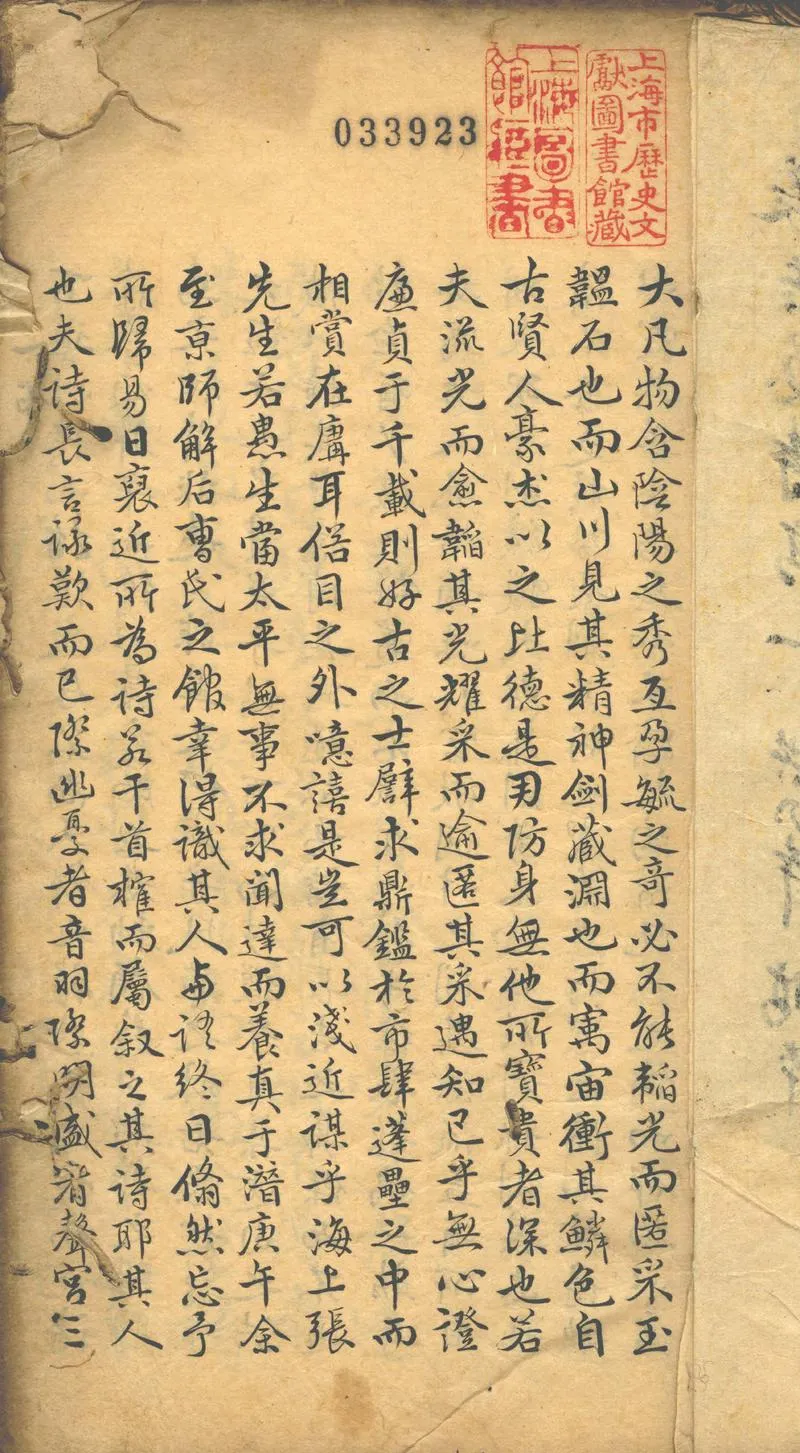 上海市歷史文
獻圖書館藏
上海圖書
館藏書
033923
大凡物含陰陽之秀互孕毓之奇必不能韜光而匿采玉
韞石也而山川見其精神劍藏淵也而寓宙衝其鱗色自
古賢人豪杰以之比德是用防身無他所寶貴者深也若
夫流光而愈韜其光耀采而逾匿其采遇知已乎無心證
廉貞于千載則好古之士譬求鼎鑑於市肆蓬壘之中而
相賞在庸耳俗目之外噫譆是豈可以淺近謀乎海上張
先生若愚生當太平無事不求聞達而養真于潛庚午余
至京師解后曹氏之館幸得識其人與語終日翛然忘予
所歸易日裒近所為詩若干首榷而屬叙之其詩耶其人
也夫詩長言詠歎而已際幽憂者音羽際明盛者聲宮